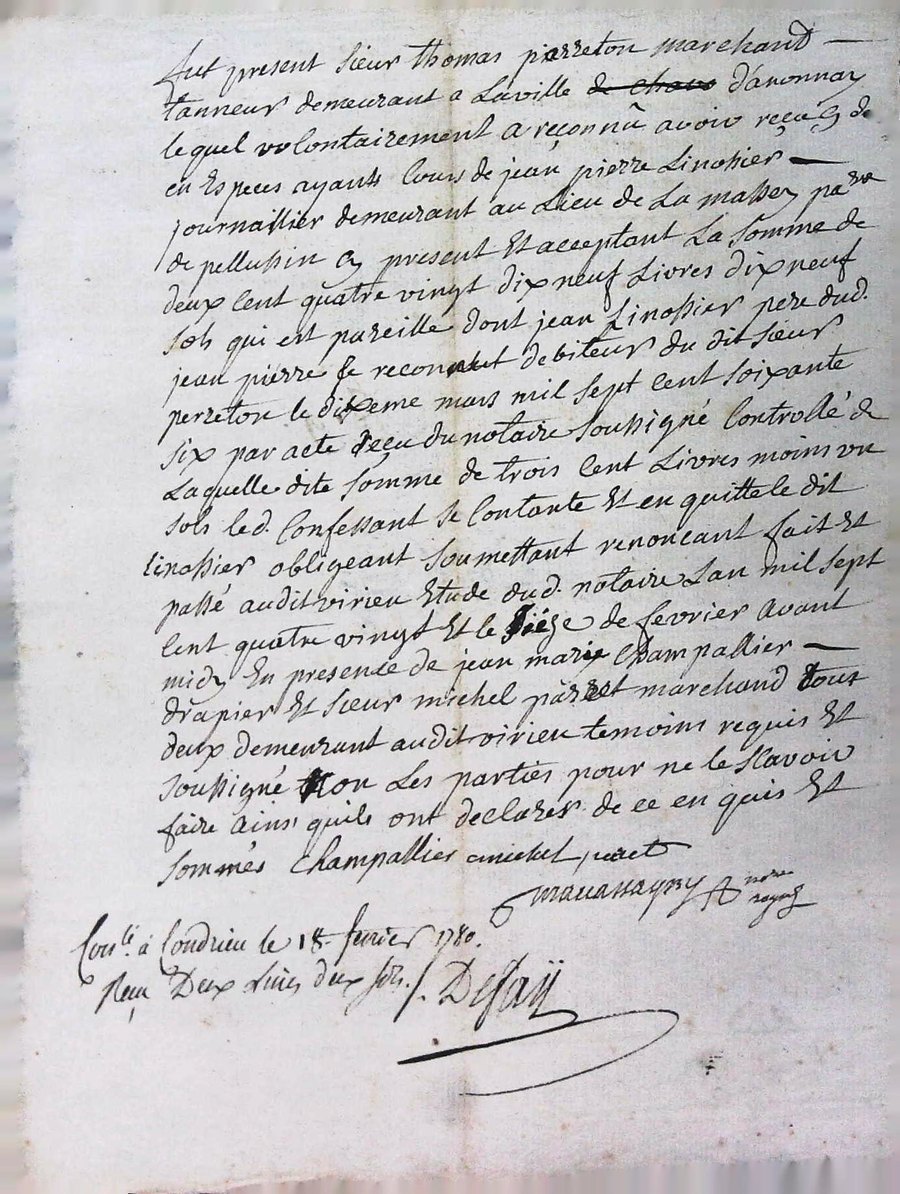 fut present sieur thomas pierreton marchand
tanneur demeurant a La ville de chavo d'anonnay
lequel volontairement a reconnu avoir reçu cy de
en Especes ayants Cours de jean pierre Linossier
journallier demeurant au Lieu de La massey pasve
de pellussin cy present Et acceptant La somme de
deux Cent quatre vingt dix neuf Livres dix neuf
sols qui est pareille dont jean Linossier pere dud.
jean pierre se reconnut debiteur du dit sieur
perreton le dixeme mars mil sept Cent soixante
six par acte reçu du notaire soussigné Controllé de
Laquelle dite somme de trois Cent Livres moins un
sols led. Confessant se Contante Et en quitte le dit
Linossier obligeant soumettant renoncant fait Et
passé audit virieu Etude dud. notaire Lan mil sept
Cent quatre vingt Et le siéze de fevrier avant
midy En presence de jean marie Champallier
drapier Et sieur michel parret marchand tous
deux demeurant audit virieu temoins requis Et
soussigné non Les parties pour ne le sçavoir
faire ainsi quils ont declarer de ce en quis Et
sommés Champallier michel paret
mavassagny nore royal
Conlé. à Condrieu le 18. fevrier 1780.
Reçu Deux Livres deux sols. Defaÿ